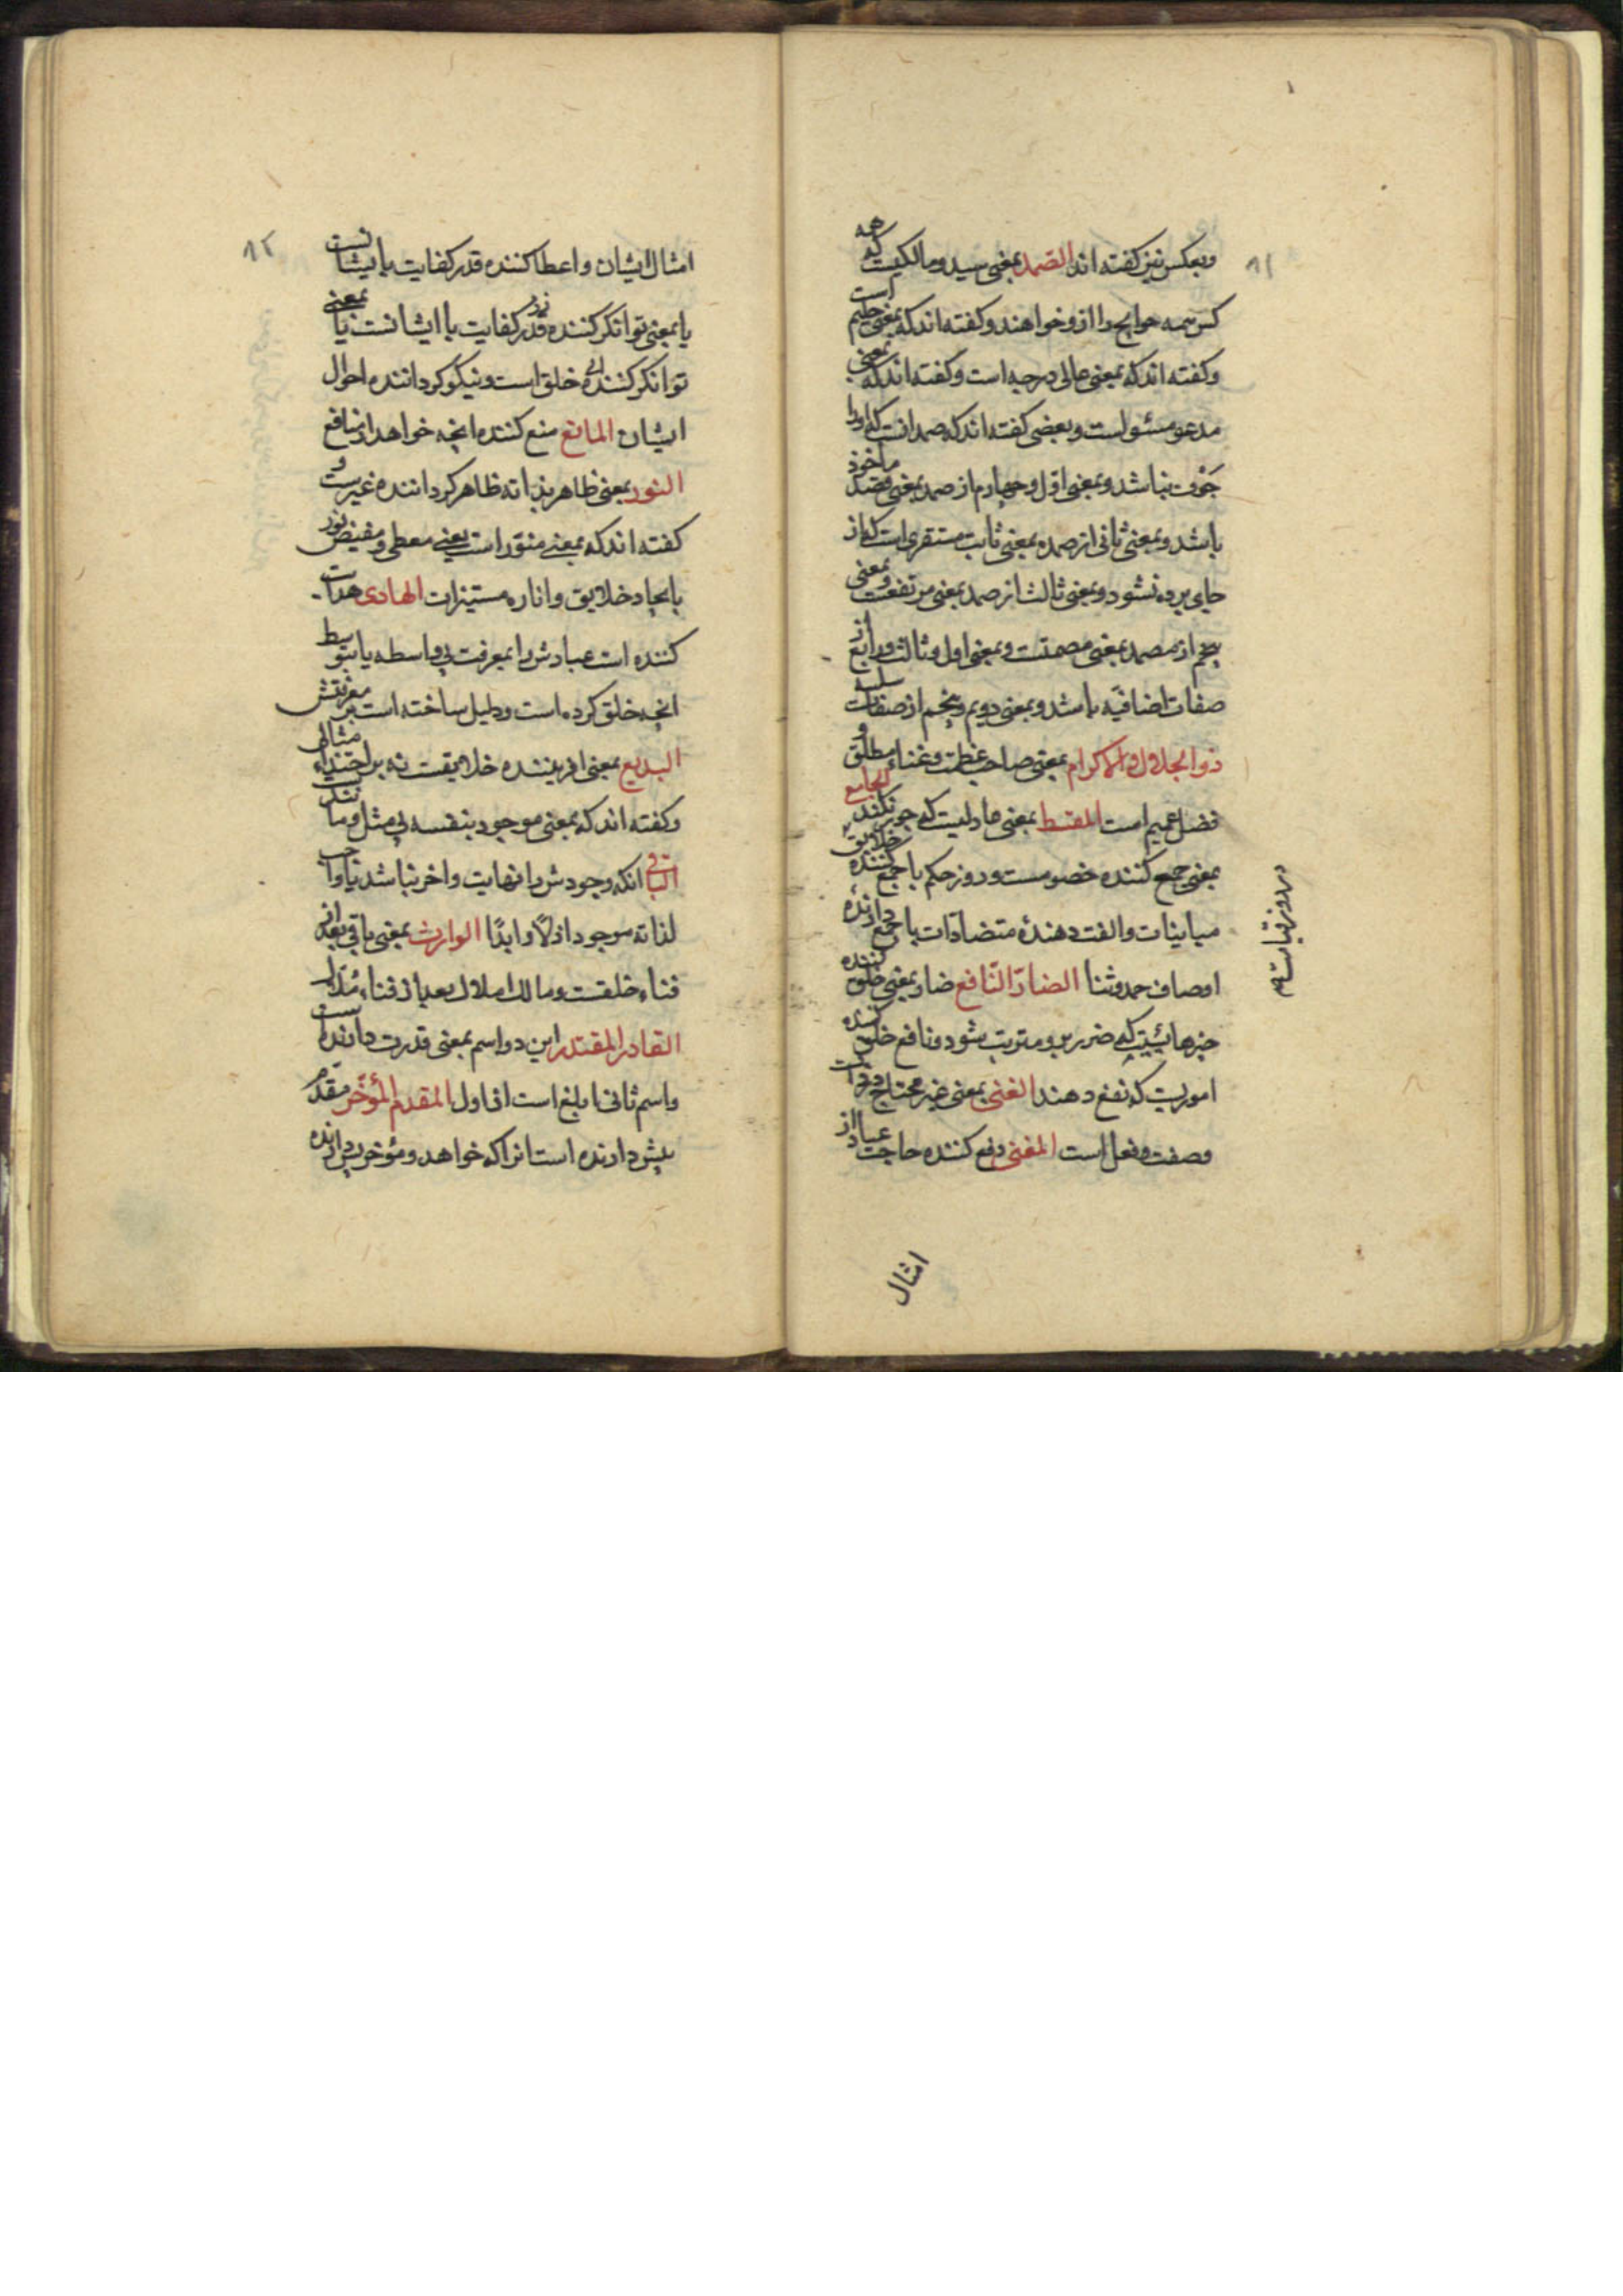 ۸۱
وبعکس نیز کفته اند الصمد بمعنی سید ومالکیست که همه
کس همه حوایج را از و خواهند وکفته اند که بمعنی حلیم است
وکفته اند که بمعنی عالی درجه است وکفته اند که بمعنی
مدعو مسئولست وبعضی کفته اند که صمد انست که او را
جَوْف نباشد وبمعنی اوّل وچهارم از صمد بمعنی قصد ماخوذ
باشد وبمعنی ثانی از صمد بمعنی ثابت مستقری است که از
جای برده نشود وبمعنی ثالث از صمد بمعنی مرتفعست وبمعنی
پنجم از مصمد بمعنی مصمتست وبمعنی اول وثالث ورابع از
صفات اضافیّه باشد وبمعنی دویم وپنجم از صفات سلبیه
ذو الجلال والاکرام بمعنی صاحب عظمت وغناء مطلق و
فضل عمیم است المقسط بمعنی عادلیست که جور نکند الجامع
بمعنی جمع کننده خصومست در روز حکم یا جمع کننده خلایق
در روز قیامت
مباینات والفت دهندهٔ متضادّات یا جمع دارنده
اوصاف حمد وثنا الضارّ النّافع ضار بمعنی خلق کننده
چیزهائیست که ضرر برو مترتب شود ونافع خلق کننده
اموریست که نفع دهند الغنی بمعنی غیر محتاج در ذات
وصفت وفعل است المغنی دفع کننده حاجت عباد از
امثال
۸۲
امثال ایشان واعطا کننده قدر کفایت بایشانست
یا بمعنی توانکر کننده قدر کفایت با ایشانست یا بمعنی
توانکر کننده خلق است ونیکو کرداننده احوال
ایشان المانع منع کننده انچه خواهد از منافع
النور بمعنی ظاهر بذاته ظاهر کرداننده غیرست و
کفته اند که بمعنی منوّر است یعنی معطی ومفیض نور
بایجاد خلایق واناره مستنیرات الهادی هدایت
کننده است عبادش را بمعرفت بی واسطه یا بتوسط
انچه خلق کرده است ودلیل ساخته است بر معرفتش
البدیع بمعنی افریننده خلایقست نه بر احتذاء مثالی
وکفته اند که بمعنی موجود بنفسه بی مثل وما نند
الباقی انکه وجودش را نهایت واخر نباشد یا واجب
لذاته موجود ازلًا وابدًا الوارث بمعنی باقی بعد از
فناء خلقست ومالک املاک بعد از فناء مُلّاک
القادر المقتدر این دو اسم بمعنی قدرت دارنده است
واسم ثانی ابلغ است از اول المقدم المؤخّر مقدّم
پیش دارنده است انرا که خواهد ومؤخر پس دارنده